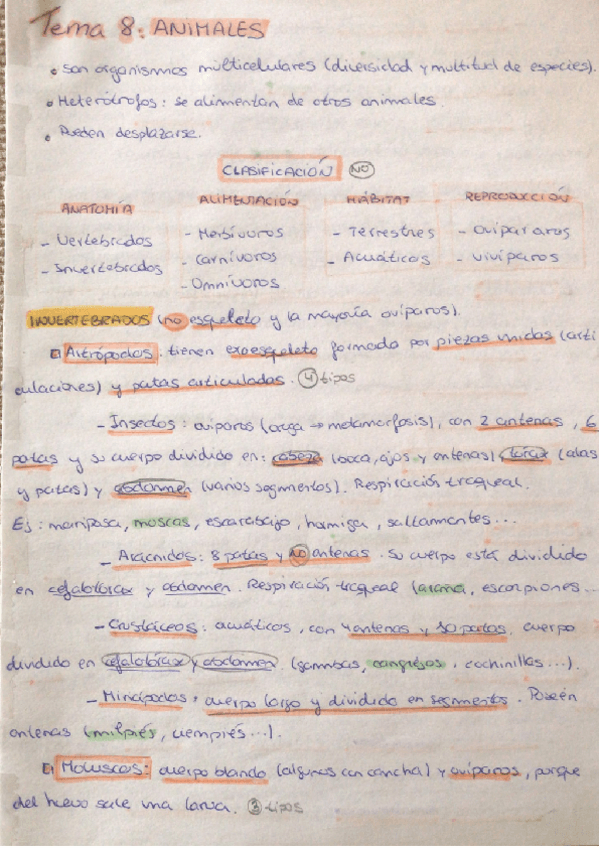 Tema 8: ANIMALES
• Son organismos multicelulares (diversidad y multitud de especies).
• Heterótrofos: se alimentan de otros animales.
• Pueden desplazarse.
CLASIFICACIÓN NO
ANATOMÍA ALIMENTACIÓN HÁBITAT REPRODUCCIÓN
- Vertebrados - Herbívoros - Terrestres - Oviparos
- Invertebrados - Carnívoros - Acuáticos - Vivíparos
- Omnívoros
INVERTEBRADOS (no esqueleto y la mayoría ovíparos).
Artrópodos: tienen exoesqueleto formado por piezas unidas (arti
culaciones) y patas articuladas. 4 tipos
- Insectos: oviparos (larga → metamorfosis), con 2 antenas, 6
patas y su cuerpo dividido en: cabeza (boca, ojos y antenas), tórax (alas
y patas) y abdomen (varios segmentos). Respiración traqueal.
Ej: mariposa, moscas, escarabajo, hormiga, saltamontes...
- Arácnidos: 8 patas y no antenas. Su cuerpo está dividido
en cefalotórax y abdomen. Respiración traqueal (araña, escorpiones...
- Crustáceos: acuáticos, con 4 antenas y 10 patas. cuerpo
dividido en cefalotórax y abdomen. (gambas, cangrejos, cochinillas...).
- Miriápodos: cuerpo largo y dividido en segmentos. Poseén
antenas (milpiés, ciempiés...).
Moluscos: cuerpo blando (algunos con concha) y ovíparos, porque
del huevo sale una larva. 3 tipos